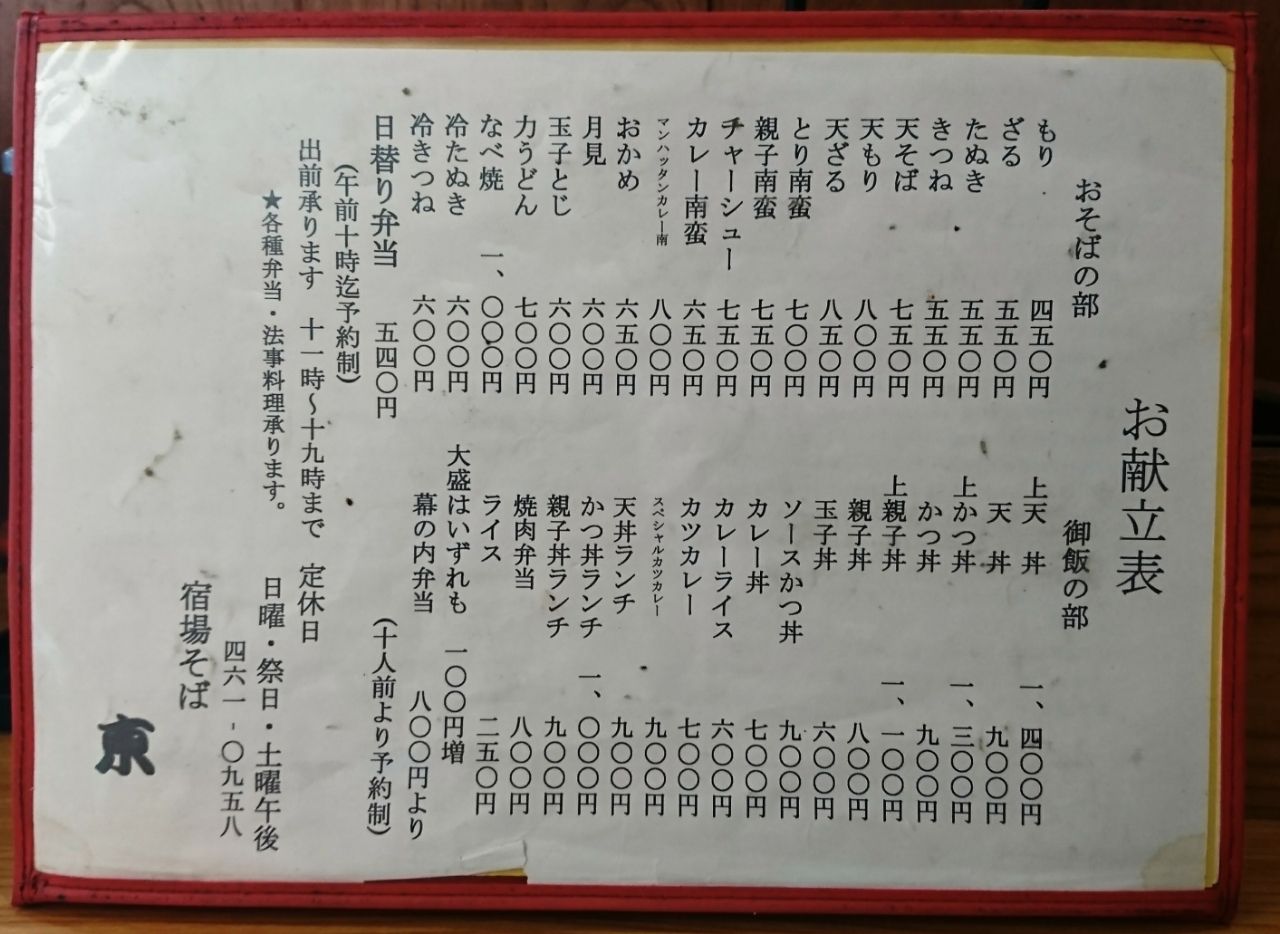 お献立表
おそばの部
もり 四五〇円
ざる 五五〇円
たぬき 五五〇円
きつね 五五〇円
天そば 七五〇円
天もり 八〇〇円
天ざる 八五〇円
とり南蛮 七〇〇円
親子南蛮 七五〇円
チャーシュー 七五〇円
カレー南蛮 六五〇円
マンハッタンカレー南 八〇〇円
おかめ 六五〇円
月見 六〇〇円
玉子とじ 六〇〇円
力うどん 七〇〇円
なべ焼 一、〇〇〇円
冷たぬき 六〇〇円
冷きつね 六〇〇円
日替り弁当 五四〇円
(午前十時迄予約制)
御飯の部
上天丼 一、四〇〇円
天丼 九〇〇円
上かつ丼 一、三〇〇円
かつ丼 九〇〇円
上親子丼 一、一〇〇円
親子丼 八〇〇円
玉子丼 六〇〇円
ソースかつ丼 九〇〇円
カレー丼 七〇〇円
カレーライス 六〇〇円
カツカレー 七〇〇円
スペシャルカツカレー 九〇〇円
天丼ランチ 九〇〇円
かつ丼ランチ 一、〇〇〇円
親子丼ランチ 九〇〇円
焼肉弁当 八〇〇円
ライス 二五〇円
大盛はいずれも 一〇〇円増
幕の内弁当 八〇〇円より
(十人前より予約制)
出前承ります 十一時〜十九時まで 定休日
★各種弁当・法事料理承ります。 日曜・祭日・土曜午後
四六一-〇九五八
宿場そば
京